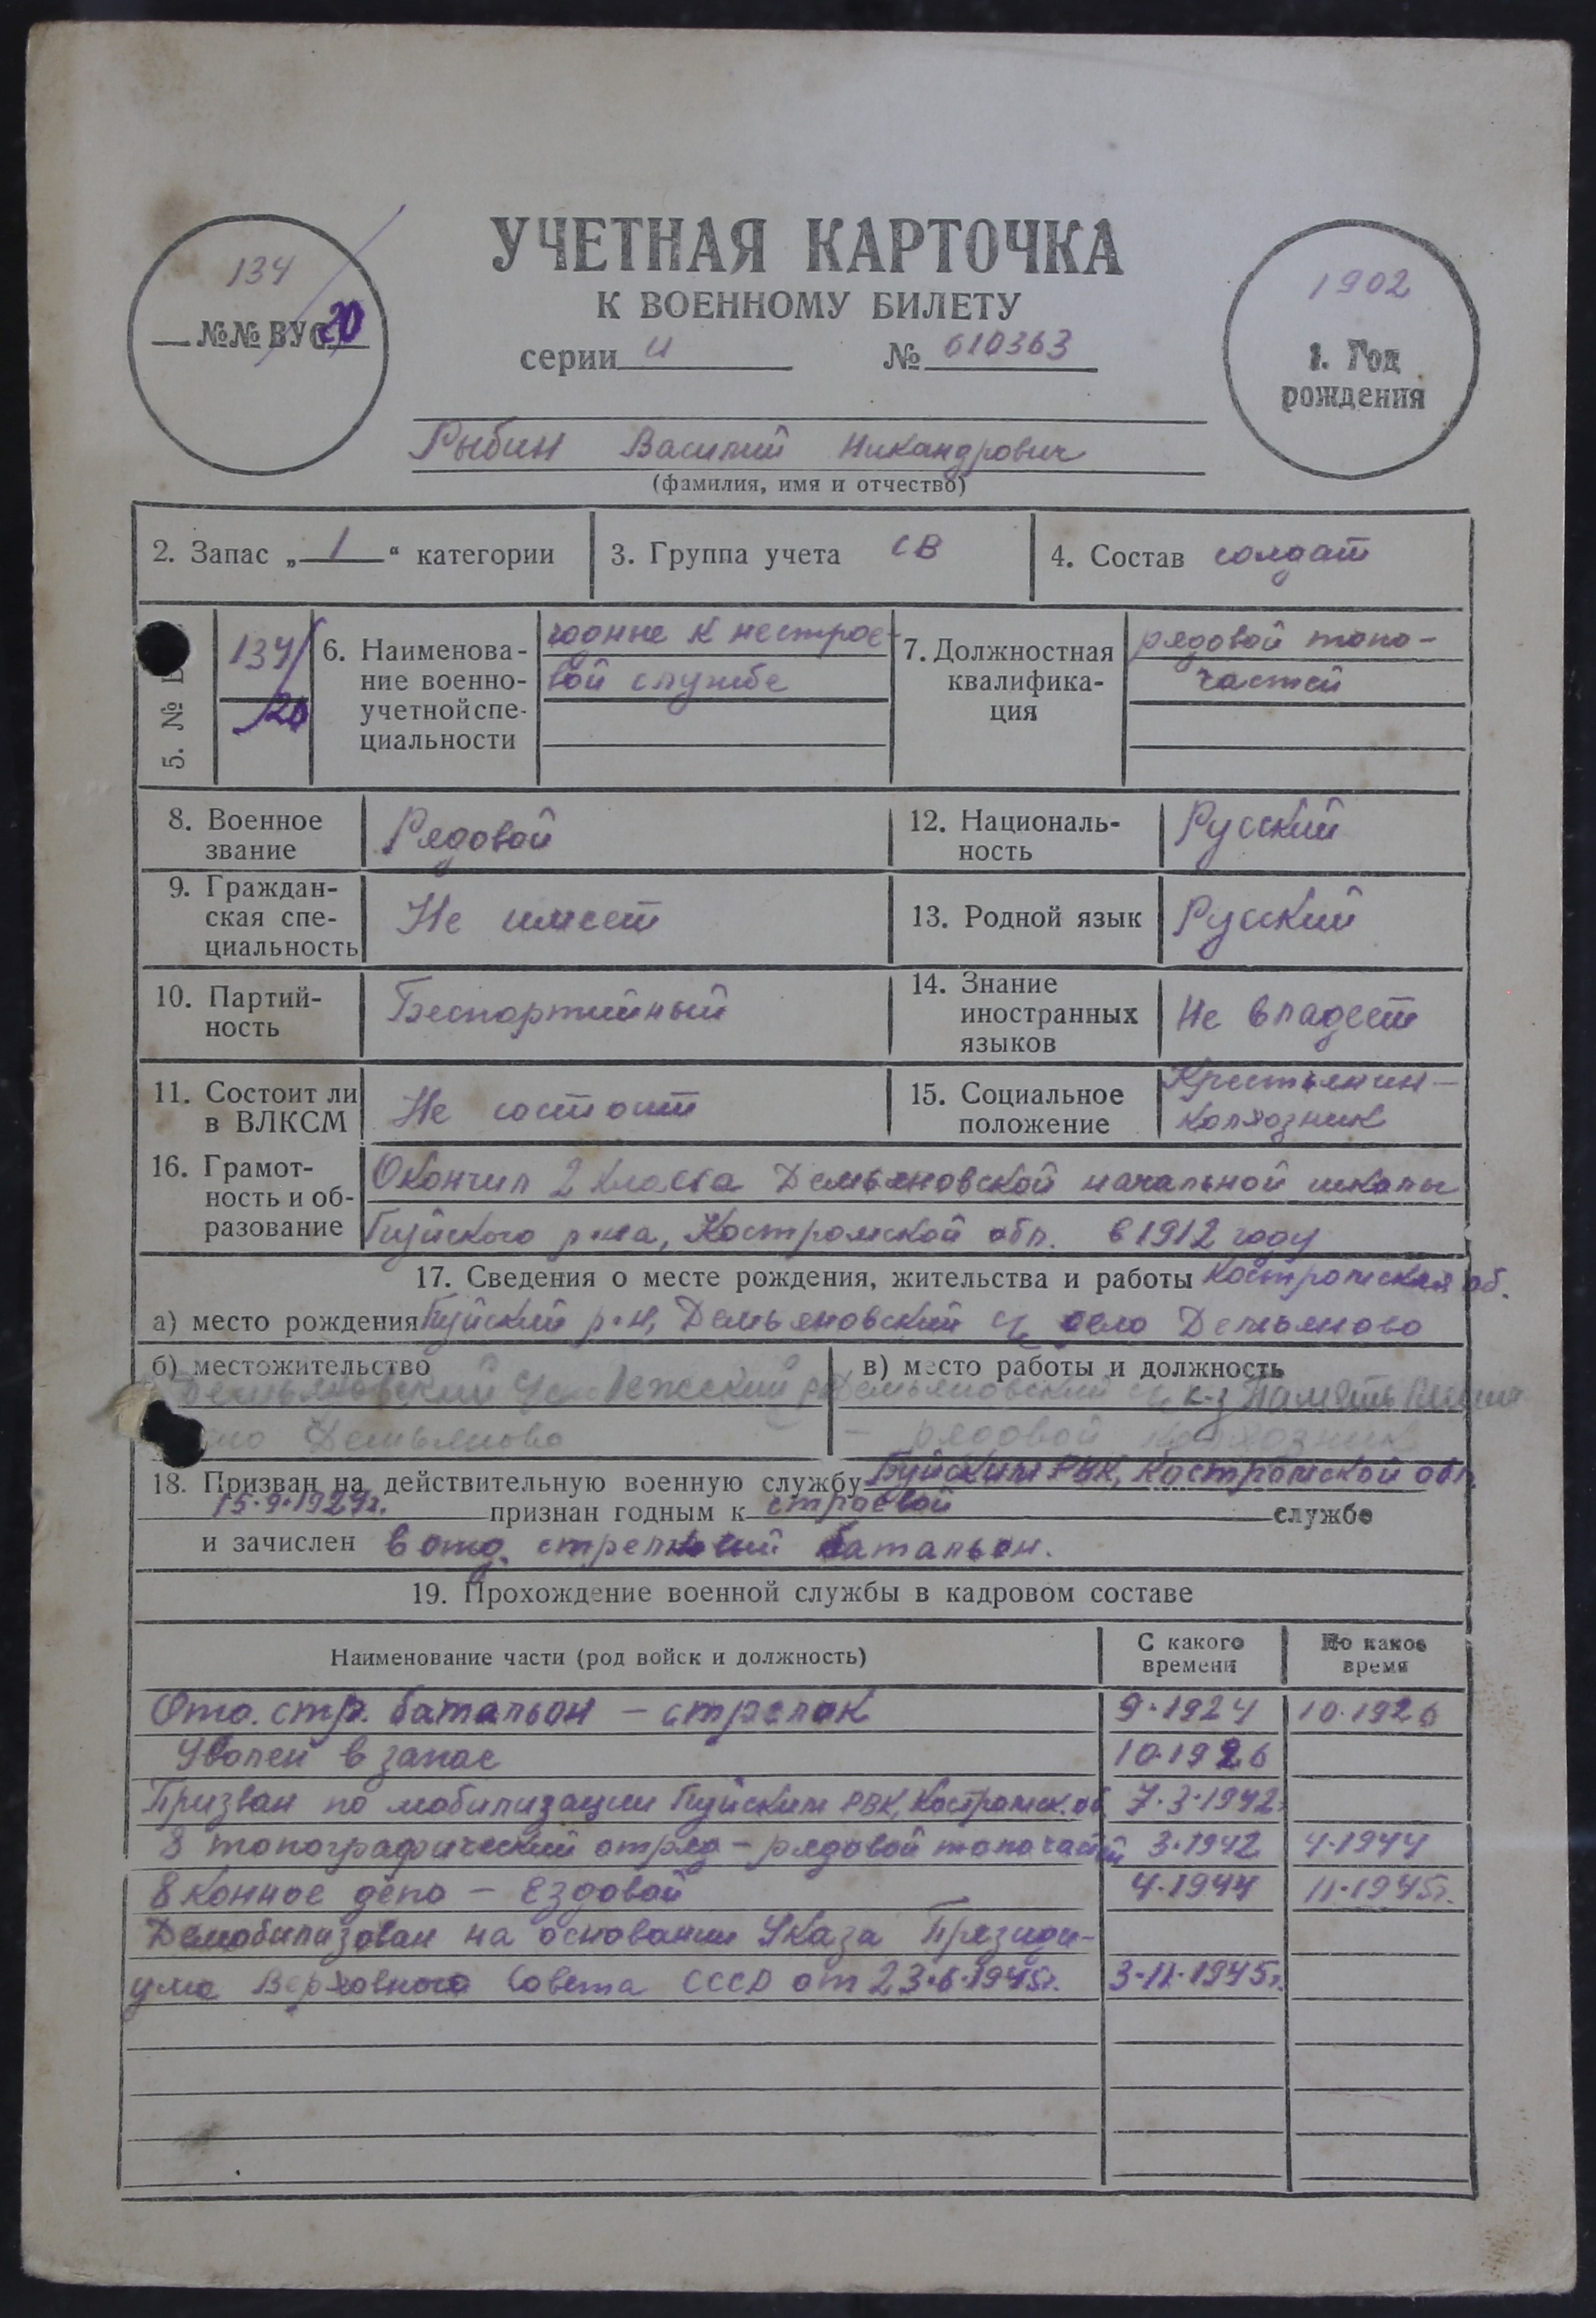 УЧЕТНАЯ КАРТОЧКА
К ВОЕННОМУ БИЛЕТУ
серии И № 610363
134
№№ ВУС 20
1902
1. Год
рождения
Рыбин Василий Никандрович
(фамилия, имя и отчество)
2. Запас „ 1 “ категории
3. Группа учета СВ
4. Состав солдат
5. №
134
20
6. Наименова-
ние военно-
учетной спе-
циальности
годные к нестрое-
вой службе
7. Должностная
квалифика-
ция
рядовой топо-
частей
8. Военное
звание
Рядовой
12. Националь-
ность
Русский
9. Граждан-
ская спе-
циальность
Не имеет
13. Родной язык
Русский
10. Партий-
ность
Беспартийный
14. Знание
иностранных
языков
Не владеет
11. Состоит ли
в ВЛКСМ
Не состоит
15. Социальное
положение
Крестьянин-
колхозник
16. Грамот-
ность и об-
разование
Окончил 2 класса Демьяновской начальной школы
Буйского р-на, Костромской обл. в 1912 году
17. Сведения о месте рождения, жительства и работы Костромская об.
а) место рождения Буйский р-н, Демьяновский с/с село Демьяново
б) местожительство
Демьяновский
Демьяново
в) место работы и должность
Демьяновский с/с к-з Память
рядовой колхозник
18. Призван на действительную военную службу Буйским РВК, Костромской обл.
15.9.1924г. признан годным к строевой службе
и зачислен в отд. стрелковый батальон.
19. Прохождение военной службы в кадровом составе
Наименование части (род войск и должность)
С какого
времени
По какое
время
Отд. стр. батальон – стрелок 9.1924 10.1926
Уволен в запас 10.1926
Призван по мобилизации Буйским РВК, Костромск. об. 7.3.1942
8 топографический отряд – рядовой топочастей 3.1942 4.1944
8 конное депо – Ездовой 4.1944 11.1945г.
Демобилизован на основании Указа Президи-
ума Верховного Совета СССР от 23.6.1945г. 3.11.1945г.